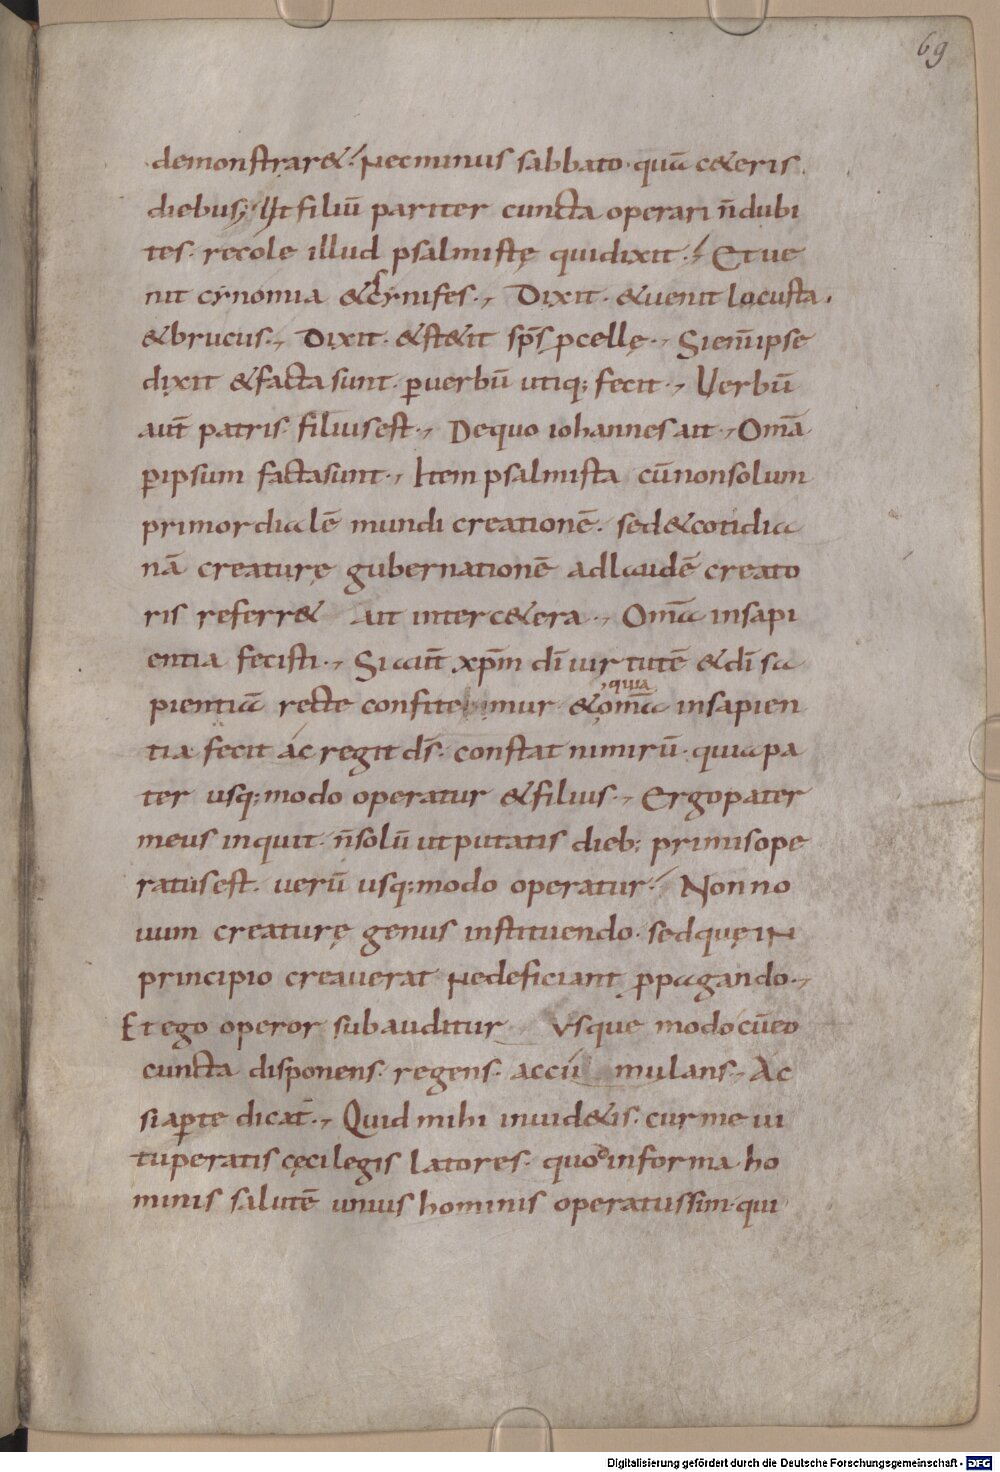 69
demonstrar&. Necminus sabbato· quā c&eris
diebus; Ut filiū pariter cuncta operari n̄dubi
tes· recole illud psalmistę quidixit· Et ue
nit cynomia &scynifes·, Dixit· &uenit locusta·
&brucus·, Dixit· &st&it sp̄s ꝓcellę·, Sienīipse
dixit &facta sunt· ꝑuerbū utiq; fecit·, Uerbū
aut̄ patris filiusest·, Dequo iohannes ait·, Om̄a
ꝑipsum factasunt·, Item psalmista cūnonsolum
primordialē mundi creationē· sed&cotidia
nā creaturę gubernationē adlaudē creato
ris referr& ait interc&era·, Om̄a insapi
entia fecisti·, Siaut̄ xp̄m dī uirtutē &dī sa
pientiā recte confitebimur &om̄a insapien
quia
tia fecit ac regit ds̄· constat nimirū· quiapa
ter usq;modo operatur &filius·, Ergopater
meus inquit· n̄solū utputatis dieb; primisope
ratusest· uerū usq;modo operatur· Nonno
uum creaturę genus instituendo· sedquęin
principio creauerat nedeficiant ꝓpagando·,
Et ego operor subauditur Usque modocūeo
cuncta disponens· regens· accū mulans·, Ac
siaꝑte dicat̄·, Quid mihi inuid&is· curme ui
tuperatis cęcilegis latores· quodinforma ho
minis salutē unius hominis operatussim· qui
Digitalisierung gefördert durch die Deutsche Forschungsgemeinschaft - DFG